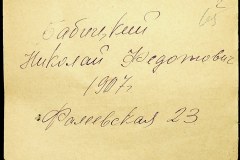 Бабицкий
Николай Федотович
1907г
Фалеевская 23